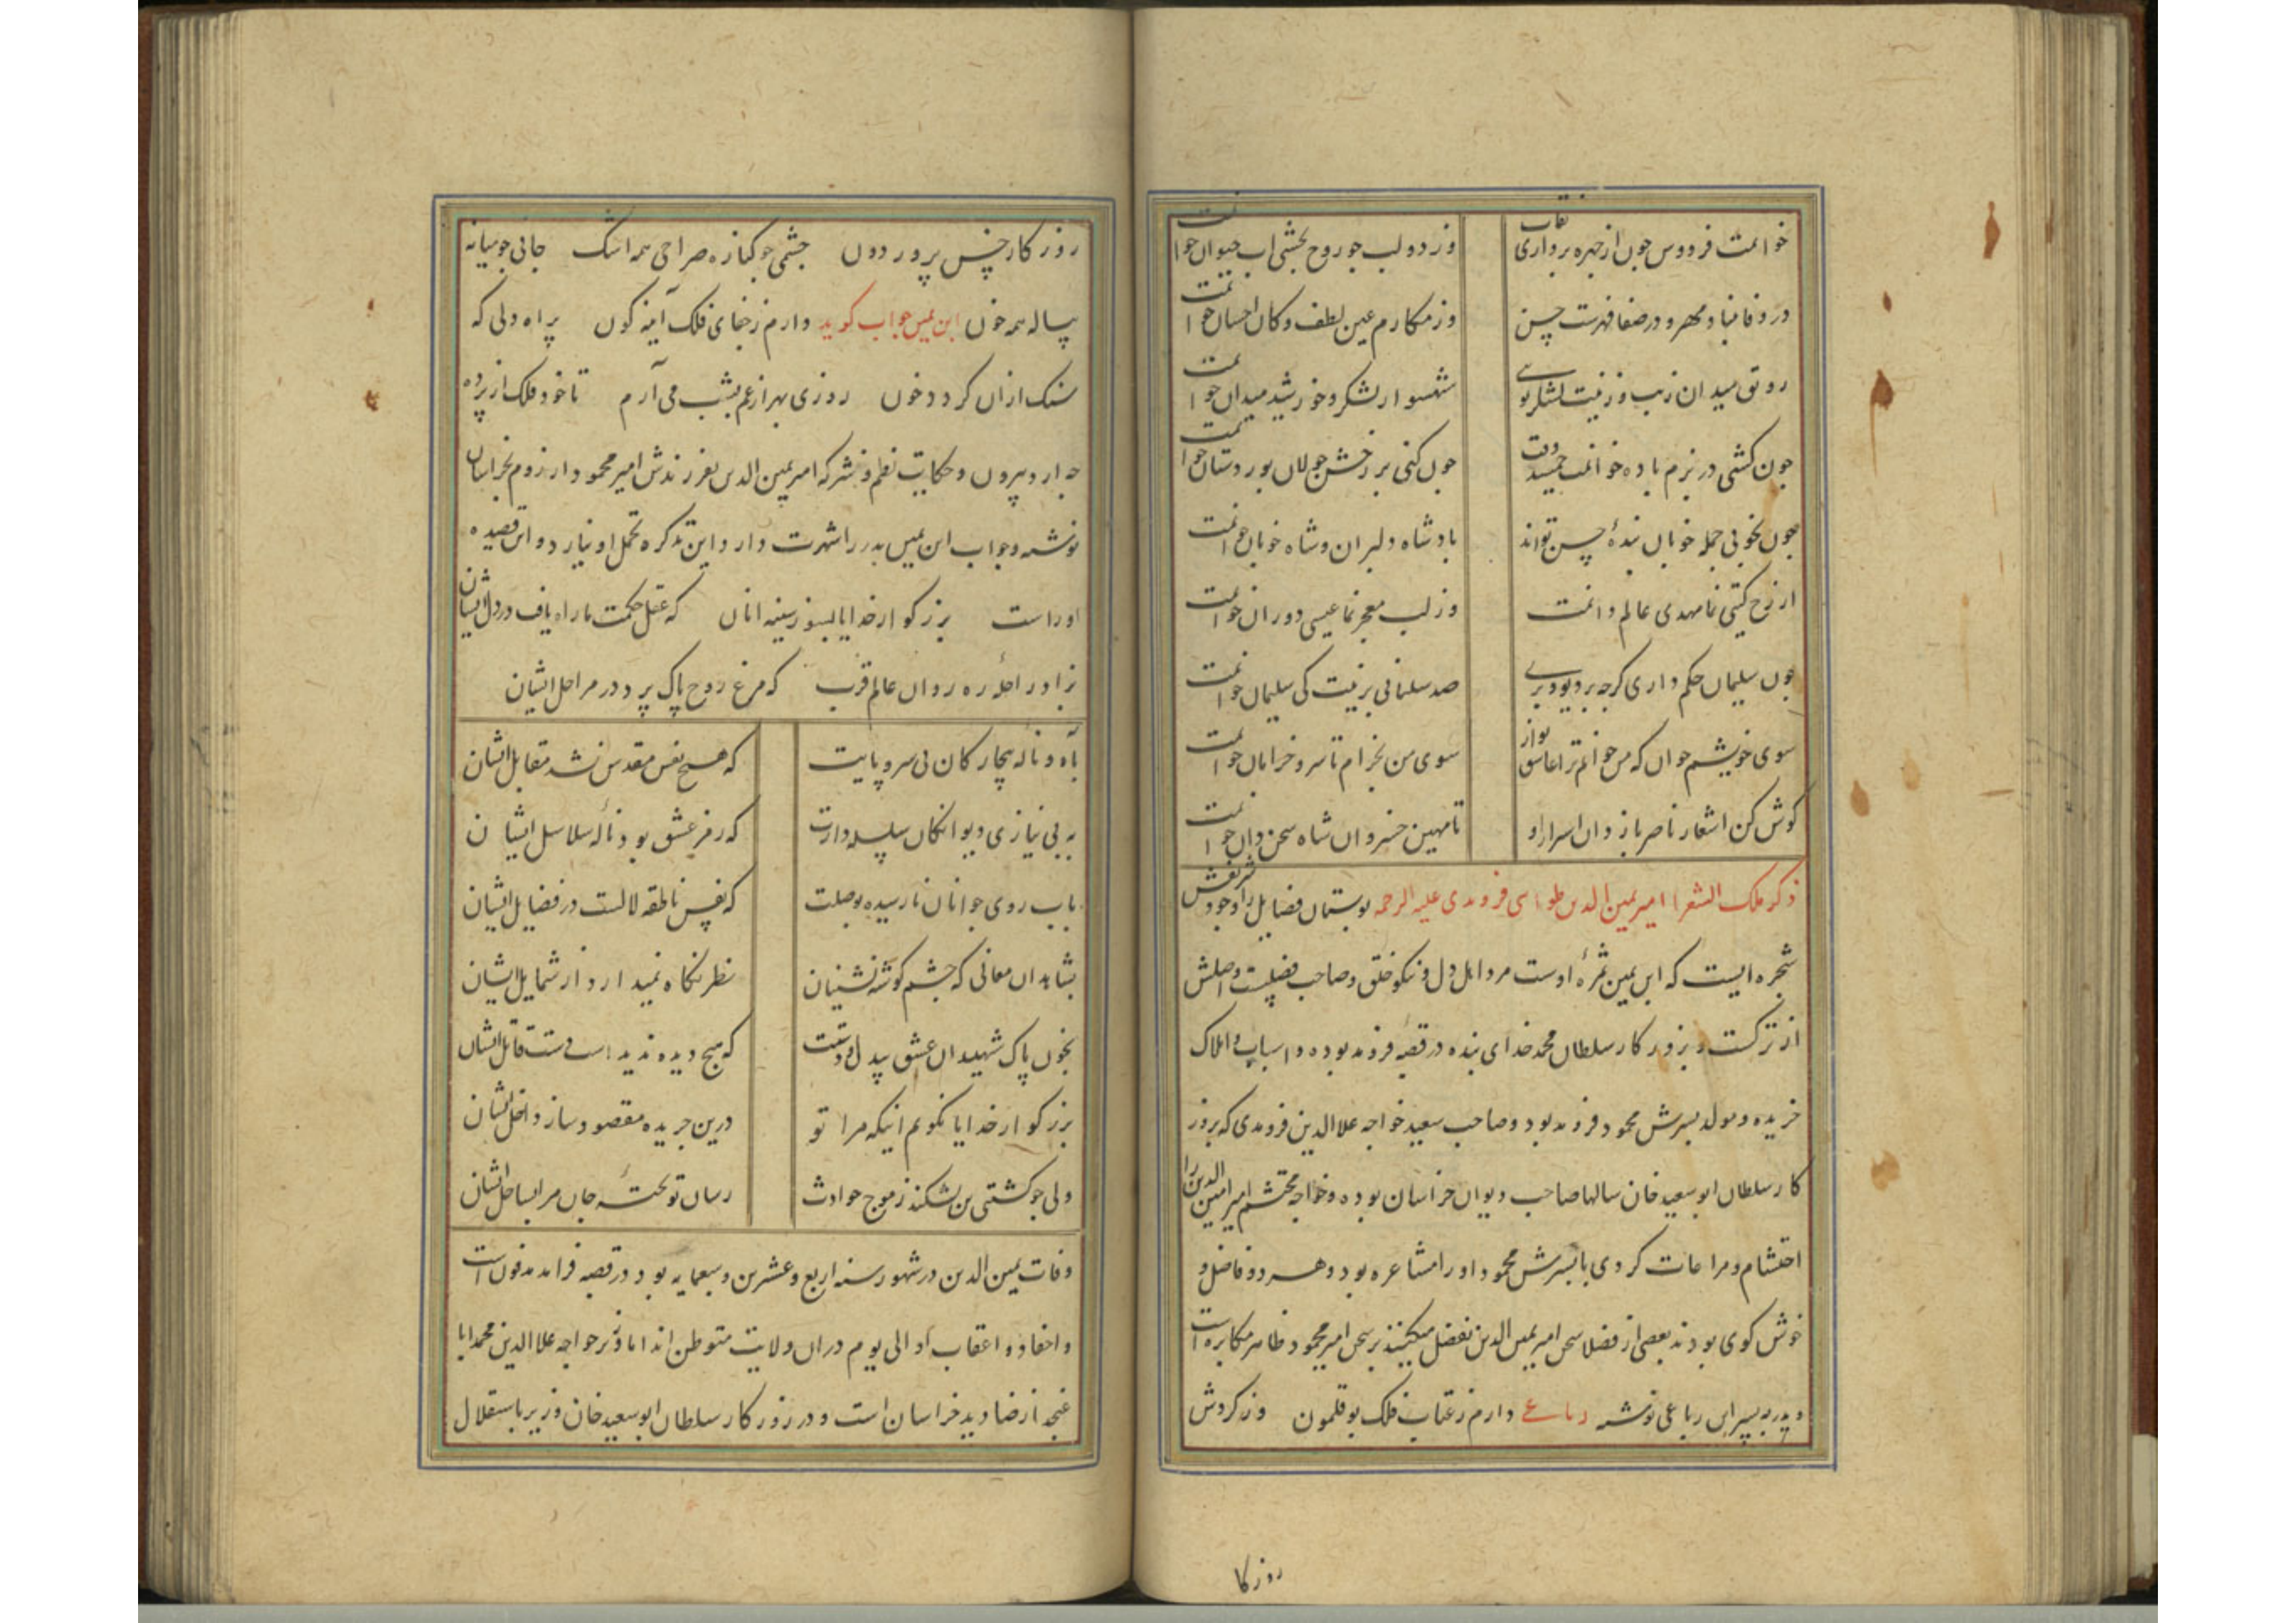 خوانمت فردوس چون از چهره برداری نقاب وز دو لب چو روح بخشی اب حیوان خوانمت
در وفا مهر و در صفا فهرست حسن وز مکارم عین لطف و کان احسان خوانمت
رونق میدان زیب و زینت لشکر تویی شهسوار لشکر و خورشید میدان خوانمت
چون کشی در بزم باده خوانمت جمشید وقت چون کنی بر رخش جولان پور دستان خوانمت
چون بخوبی جمله خوبان بنده حسن تواند پادشاه دلبران و شاه خوبان خوانمت
از رخ کیتی نما مهدی عالم دانمت وز لب معجز نما عیسی دوران خوانمت
چون سلیمان حکم داری کرچه بر دیو و پری صد سلمانی بزینت کی سلیمان خوانمت
سوی خویشم خوان که من خوانم ترا عاشق نواز سوی من بخرام تا سرو خرامان خوانمت
کوش کن اشعار ناصر باز دان اسرار او تا مهین خسروان شاه سخن دان خوانمت
ذکر ملک الشعرا امیر یمین الدین طغرایی فرومدی علیه الرحمه بوستان فضایل را وجود شریفش
شجره ایست که ابن یمین ثمرهٔ اوست مرد اهل دل و نیکو خلق و صاحب فضیلت و اصلش
از ترکست و بروزکار سلطان محمد خدای بنده در قصبه فرومد بوده و اسباب و املاک
خریده و مولد پسرش محمود فرومد بود و صاحب سعید خواجه علا الدین فرومدی که بروز
کار سلطان ابو سعید خان سالها صاحب دیوان خراسان بوده و خواجه محتشم امیر امین الدین را
احتشام و مراعات کردی با پسرش محمود او را مشاعره بود و هر دو فاضل و
خوش کوی بودند بعضی از فضلا سخن امیر یمین الدین تفضل میکنند بر سخن امیر محمود ظاهر مکابره است
و پدر به پسر این رباعی نوشته رباعی دارم ز عتاب فلک بوقلمون وز کردش
روزکا
روزکار خس پرور دون چشمی چو کناره صراحی همه اشک جانی چو میانه
پیاله همه خون ابن یمین جواب کوید دارم ز جفای فلک آینه کون پر اه دلی که
سنک ازان کردد خون روزی بهزار غم بشب می آرم تا خود فلک از پرده
چه ارد بیرون و حکایت نظم و نثر که امیر یمین الدین بفرزندش امیر محمود از روم بخراسان
نوشته و جواب ابن یمین پدر را شهرت دارد و این تذکره تحمل او نیارد و این قصیده
اوراست بزرکوار خدایا بسوز سینه انان که عقل حکمت ما راه یافت در دل ایشان
بزاد راحلهٔ ره روان عالم قرب که مرغ روح پاک پرد در مراحل ایشان
بآه و ناله بیچارکان بی سر و پایت که هیچ نفس مقدس نشد مقابل ایشان
به بی نیازی دیوانکان سلسله دارت که رمز عشق بود نالهٔ سلاسل ایشان
باب روی جوانان نارسیده بوصلت که نفس ناطقه لالست در فضایل ایشان
بشاهدان معانی که چشم کوشه نشینان نظر نکاه نمیدارد از شمایل ایشان
بخون پاک شهیدان عشق بیدل و دستت که هیچ دیده ندیداست دست قاتل ایشان
بزرکوار خدایا نکویم اینکه مرا تو درین جریده مقصود ساز داخل ایشان
ولی چو کشتی من بشکند ز موج حوادث رسان تو تختهٔ جان مرا بساحل ایشان
وفات یمین الدین در شهور سنه اربع و عشرین و سبعمایه بود در قصبه فرامد مدفون است
و احفاد و اعقاب او الی یوم دران ولایت متوطن اند اما وزیر خواجه علا الدین محمد ابا
عنجد از صنادید خراسان است و در روزکار سلطان ابو سعید خان وزیر باستقلال